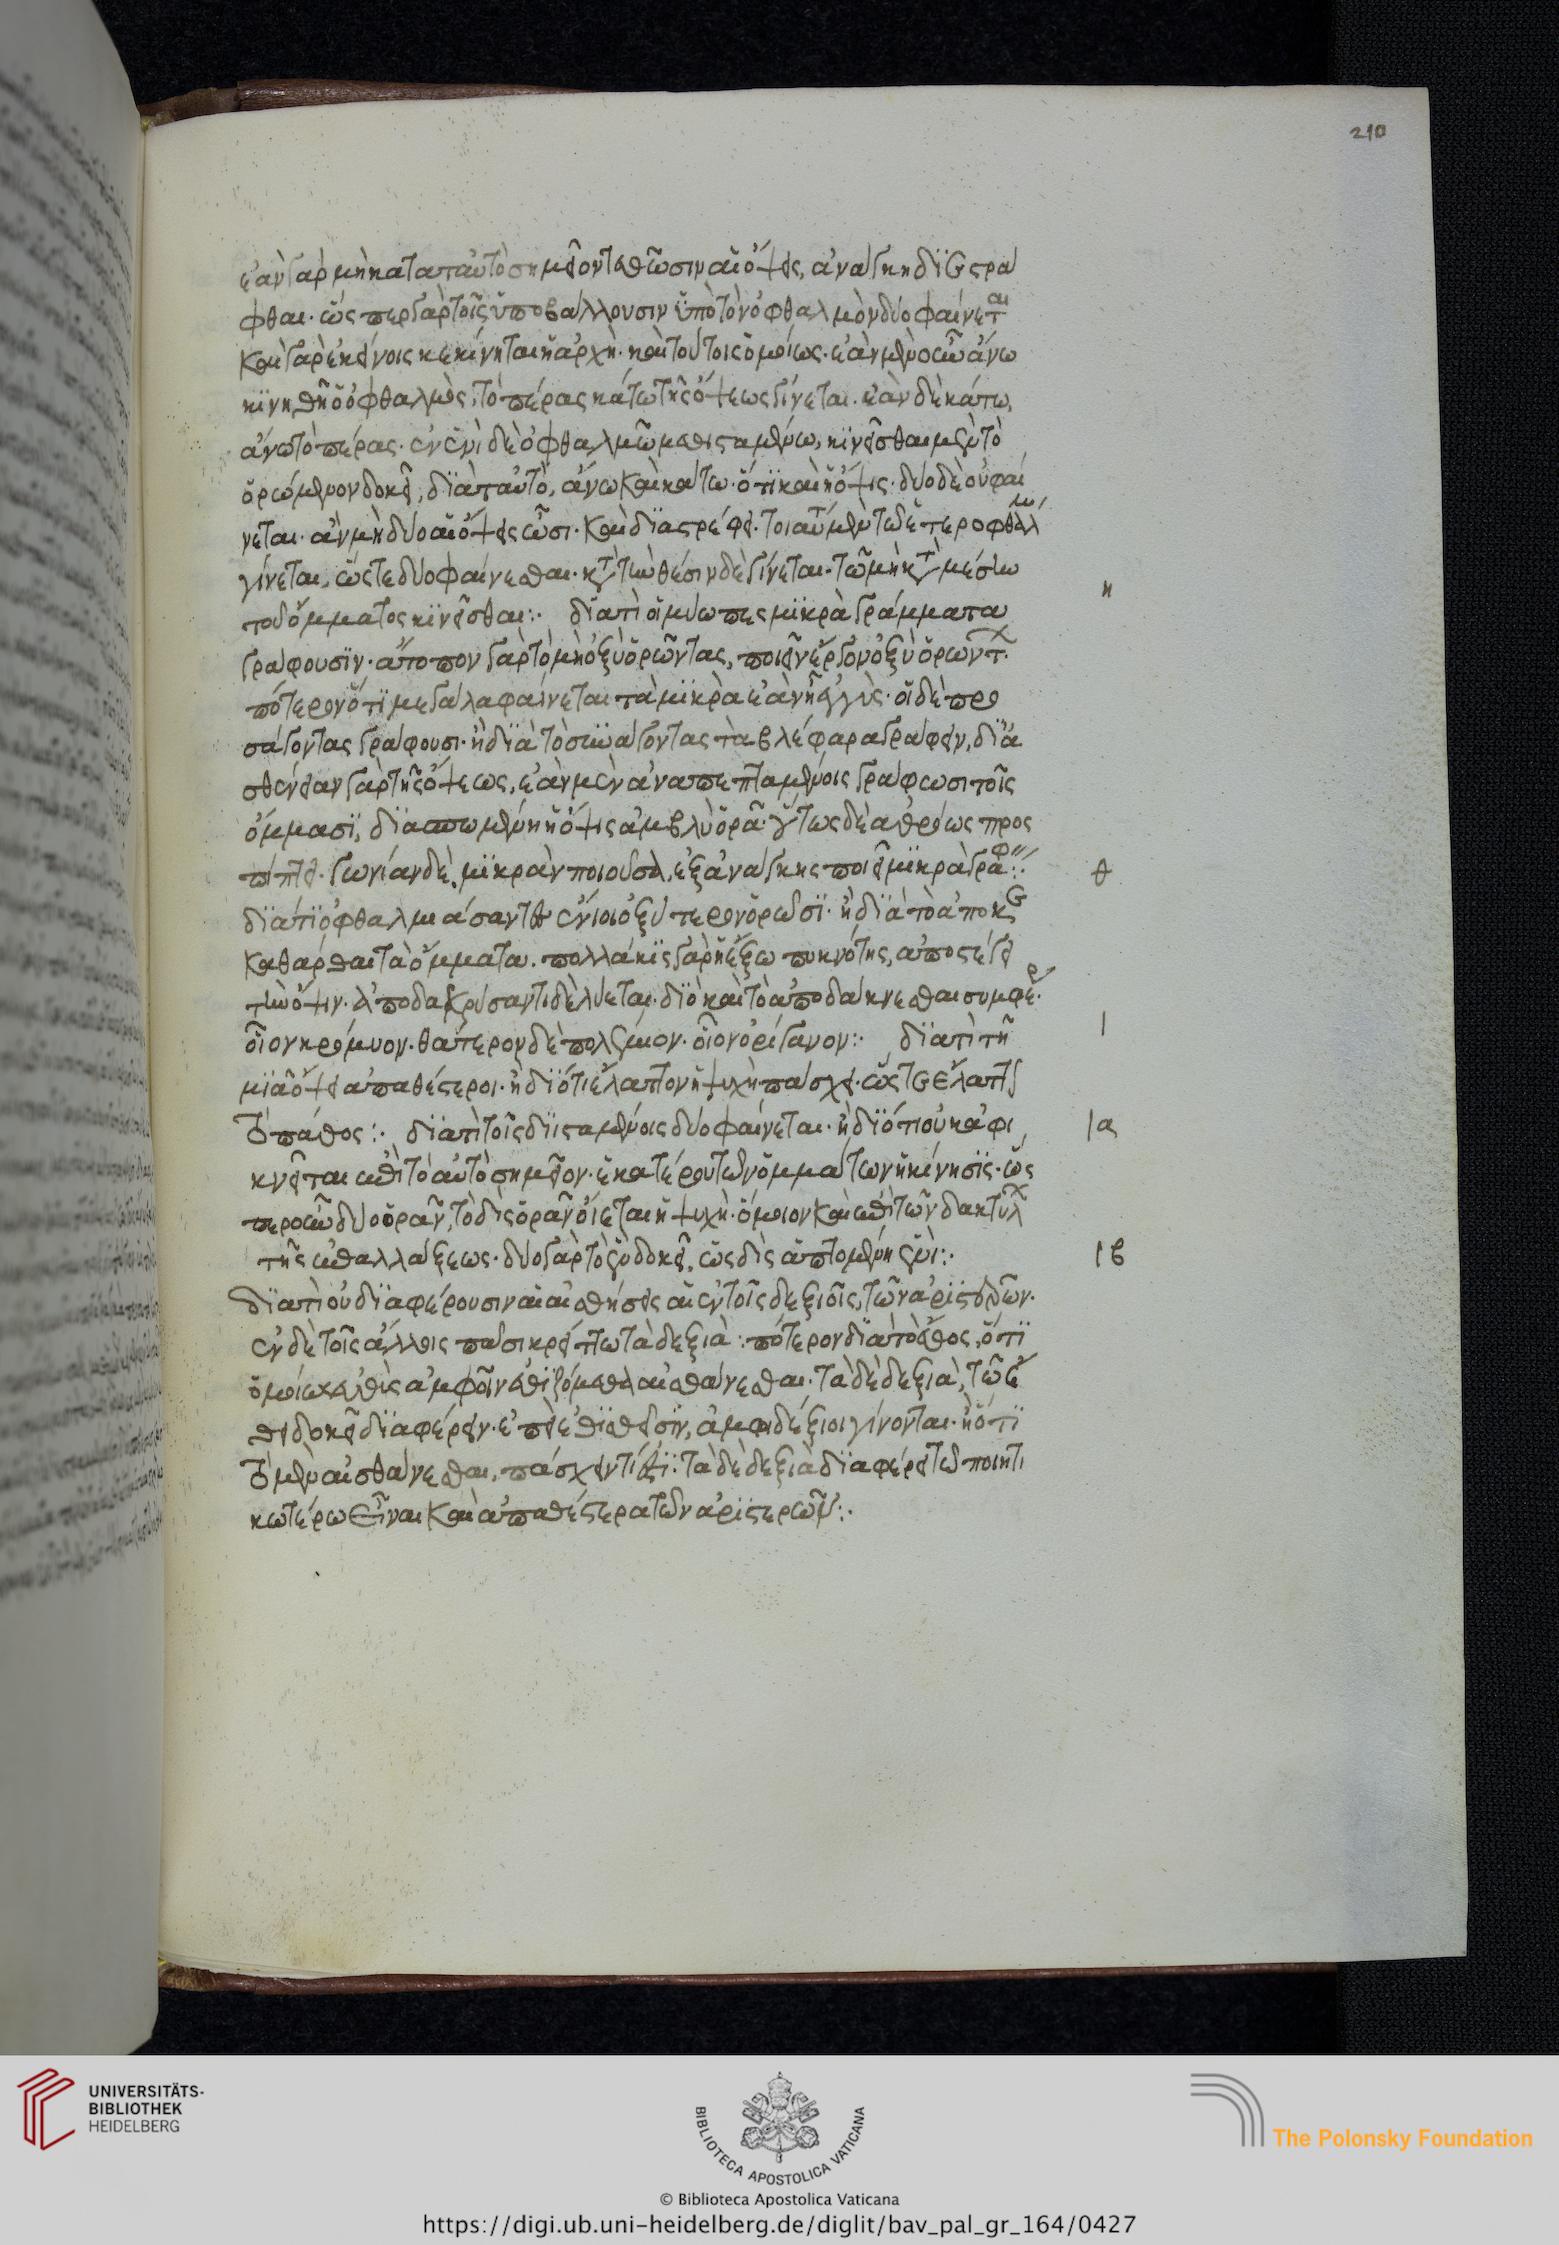 210
ἐὰν γὰρ μὴ κατὰ ταὐτὸ σημεῖον τεθῶσιν αἱ ὄψεις, ἀνάγκη διεστρά
φθαι· ὥς περ γὰρ τοῖς ὑποβάλλουσιν ὑπὸ τὸν ὀφθαλμὸν δύο φαίνεται
καὶ γὰρ ἐκείνοις κεκίνηται ἡ ἀρχή· καὶ τούτοις ὁμοίως· ἐὰν μὲν οὖν ἄνω
κινηθῇ ὁ ὀφθαλμὸς, τὸ πέρας κάτω τῆς ὄψεως γίνεται. ἐὰν δὲ κάτω,
ἄνω τὸ πέρας. ἐν ἑνὶ δὲ ὀφθαλμῷ μεθισταμένῳ, κινεῖσθαι μὲν τὸ
ὁρώμενον δοκεῖ, διὰ ταὐτὸ, ἄνω καὶ κάτω· ὅτι καὶ ἡ ὄψις· δύο δὲ οὐ φαί
νεται. ἂν μὴ δύο αἱ ὄψεις ὦσι. καὶ διαστρέφει. τοιαύτη μὲν τῷ ἑτεροφθάλμῳ
γίνεται, ὥστε δύο φαίνεσθαι· κατὰ τὴν θέσιν δὲ γίνεται. τῷ μὴ κατὰ μέσον
τοῦ ὄμματος κινεῖσθαι:· διατί οἱ μύωπες μικρὰ γράμματα
η
γράφουσιν· ἄτοπον γὰρ τὸ μὴ ὀξὺ ὁρῶντας, ποιεῖν ἔργον ὀξὺ ὁρώντων.
πότερον ὅτι μεγάλα φαίνεται τὰ μικρὰ ἐὰν ᾖ ἐγγύς· οἱ δὲ προ
σάγοντας γράφουσι· ἢ διὰ τὸ συνάγοντας τὰ βλέφαρα γράφειν, δι' ἀ
σθένειαν γὰρ τῆς ὄψεως, ἐὰν μὲν ἀναπεπταμένοις γράφωσι τοῖς
ὄμμασι, διασπωμένη ἡ ὄψις ἀμβλὺ ὁρᾷ· οὕτως δὲ ἀθρόως προς
πίπτει. γωνίαν δὲ μικρὰν ποιοῦσα, ἐξ ἀνάγκης ποιεῖ μικρὰ γράφειν:·
θ
διατί ὀφθαλμιάσαντες ἔνιοι ὀξύτερον ὁρῶσι· ἢ διὰ τὸ ἀποκε
καθάρθαι τὰ ὄμματα. πολλάκις γὰρ ἡ ἔξω πυκνότης, ἀποστέγει
τὴν ὄψιν. ἀποδακρύσαντι δὲ λύεται. διὸ καὶ τὸ ἀποδάκνεσθαι συμφέρει.
οἷον κρόμυον. θάτερον δὲ πολέμιον. οἷον ὀρίγανον:· διατί τῇ
ι
μιᾷ ὄψει ἀπαθέστεροι· ἢ διότι ἔλαττον ἡ ψυχὴ πάσχει. ὥστε ἔλαττον
τὸ πάθος:· διατί τοῖς διϊσταμένοις δύο φαίνεται· ἢ διότι οὐκ ἀφι
ια
κνεῖται ἐπὶ τὸ αὐτὸ σημεῖον. ἑκατέρου τῶν ὀμμάτων ἡ κίνησις. ὥς
περ οὖν δύο ὁρᾶν, τὸ δὶς ὁρᾶν οἴεται ἡ ψυχή· ὅμοιον καὶ ἐπὶ τῶν δακτύλων
τῆς ἐπαλλάξεως. δύο γὰρ τὸ ἓν δοκεῖ, ὡς δὶς ἁπτομένη ἑνί:·
ιβ
διατί οὐ διαφέρουσιν αἱ αἰσθήσεις αἱ ἐν τοῖς δεξιοῖς, τῶν ἀριστερῶν.
ἐν δὲ τοῖς ἄλλοις πᾶσι κρείττω τὰ δεξιά: πότερον διὰ τὸ ἔθος, ὅτι
ὁμοίως εὐθὺς ἀμφοῖν ἐθιζόμεθα αἰσθάνεσθαι. τὰ δὲ δεξιὰ, τῷ ἔ
θει δοκεῖ διαφέρειν. ἐπεὶ ἐθισθεῖσιν, ἀμφιδέξιοι γίνονται. ἢ ὅτι
τὸ μὲν αἰσθάνεσθαι, πάσχειν τί ἐστι: τὰ δὲ δεξιὰ διαφέρει τῷ ποιητι
κωτέρω εἶναι καὶ ἀπαθέστερα τῶν ἀριστερῶν:·
UNIVERSITÄTS-
BIBLIOTHEK
HEIDELBERG
BIBLIOTECA APOSTOLICA VATICANA
The Polonsky Foundation
© Biblioteca Apostolica Vaticana
https://digi.ub.uni-heidelberg.de/diglit/bav_pal_gr_164/0427